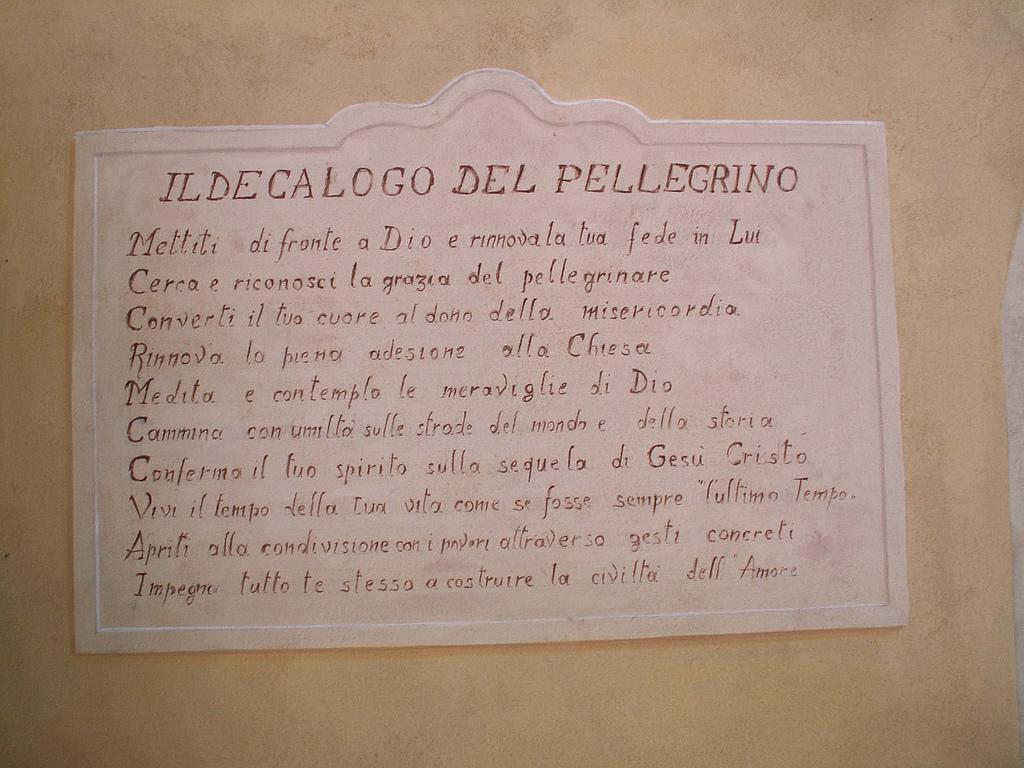 IL DECALOGO DEL PELLEGRINO
Mettiti di fronte a Dio e rinnova la tua fede in Lui
Cerca e riconosci la grazia del pellegrinare
Converti il tuo cuore al dono della misericordia
Rinnova la piena adesione alla Chiesa
Medita e contempla le meraviglie di Dio
Cammina con umiltà sulle strade del mondo e della storia
Conferma il tuo spirito sulla sequela di Gesù Cristo
Vivi il tempo della tua vita come se fosse sempre "l'ultimo Tempo.
Apriti alla condivisione con i poveri attraverso gesti concreti
Impegna tutto te stesso a costruire la civiltà dell'Amore